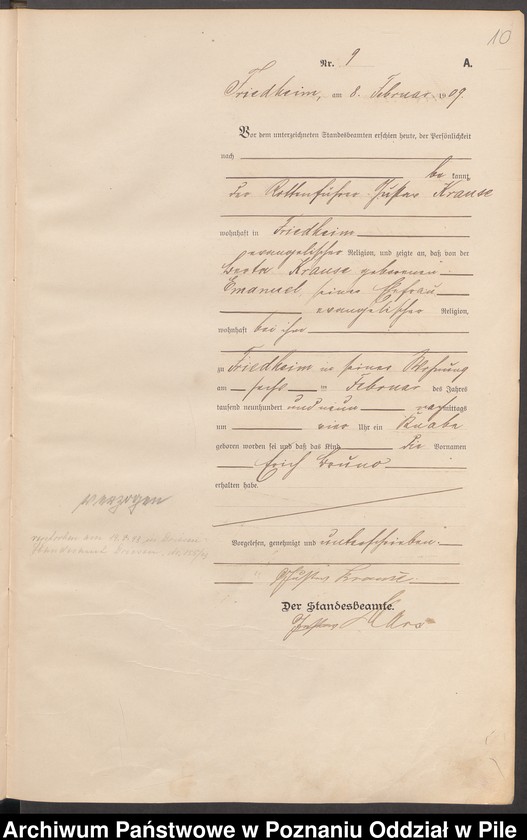 10
Nr. 9 A.
Friedheim, am 8. Februar 1909.
Vor dem unterzeichneten Standesbeamten erschien heute, der Persönlichkeit
nach
be kannt,
der Rottenführer Gustav Krause
wohnhaft in Friedheim
evangelischer Religion, und zeigte an, daß von der
Berta Krause geborenen
Emanuel, seiner Ehefrau
evangelischer Religion,
wohnhaft bei ihm
zu Friedheim in seiner Wohnung
am sechs ten Februar des Jahres
tausend neunhundert und neun nachmittags
um vier Uhr ein Knabe
geboren worden sei und daß das Kind die Vornamen
Erich Bruno
erhalten habe.
verzogen
verstorben am
Standesamt
Vorgelesen, genehmigt und unterschrieben.
Gustav Krause.
Der Standesbeamte.
Archiwum Państwowe w Poznaniu Oddział w Pile